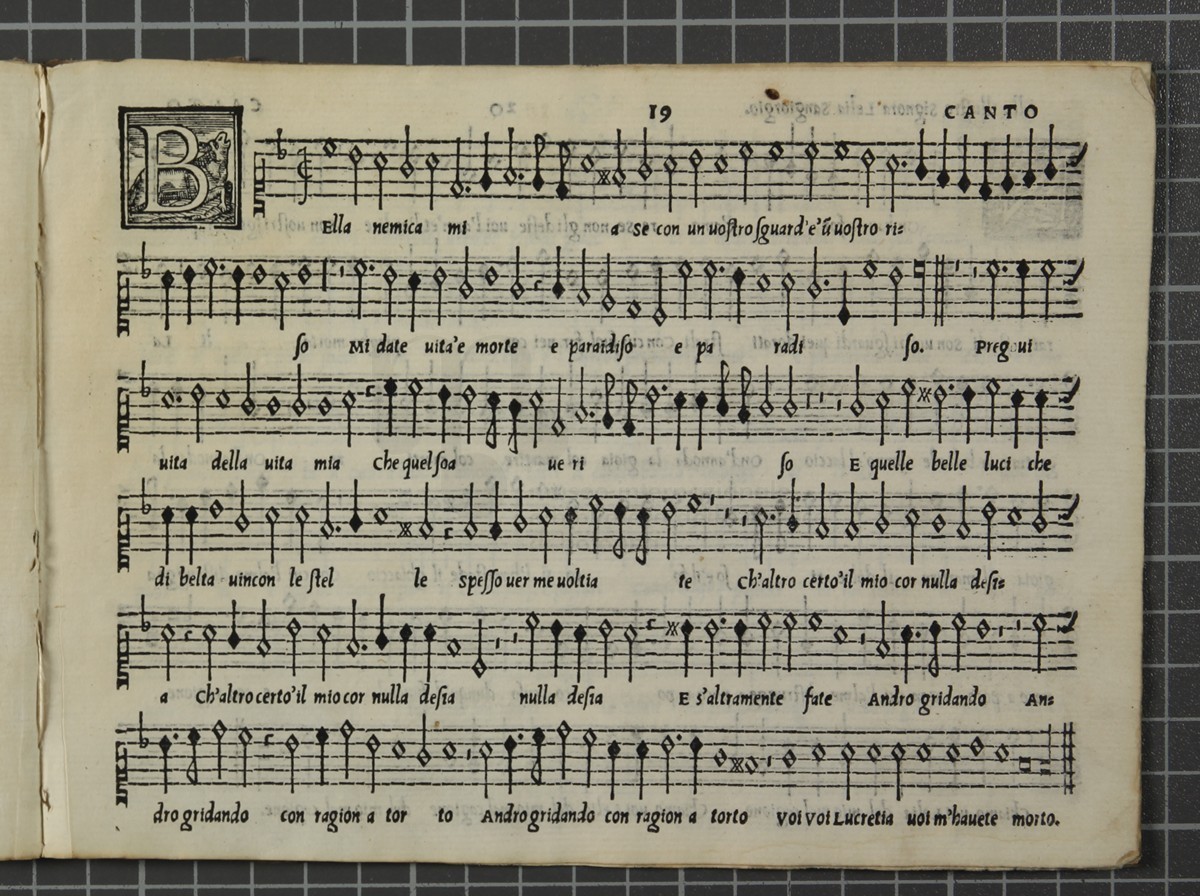 19 CANTO
BElla nemica mi a se con un uostro sguard'e'ũ uostro ri=
so Mi date uita'e morte e paraidiso e pa radi so. Preg ui
uita della uita mia Che quel soa ue ri so E quelle belle luci che
di belta uincon le stel le Spesso uer me uoltia te Ch'altro certo'il mio cor nulla desi=
a Ch'altro certo'il mio cor nulla desia nulla desia E s'altramente fate Andro gridando An=
dro gridando con ragion a tor to Andro gridando con ragion a torto Voi Voi Lucretia uoi m'hauete morto.